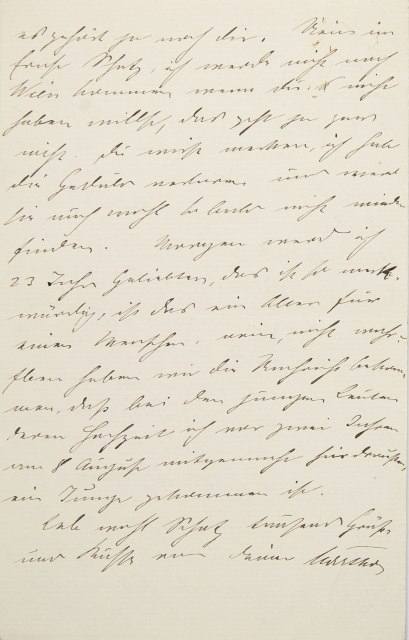 es gehört ja noch dir. Nein im
Ernst Schatz, ich werde nicht nach
Wien kommen wenn du, es nicht
haben willst, das geht ja gar
nicht. Du wirst merken, ich habe
die Geduld verloren und werde
sie auch wohl so bald nicht wieder
finden. Morgen werd ich
23 Jahr Geliebter, das ist so merk-
würdig, ist das ein Alter für
einen Menschen, nein, nicht wahr.
Eben haben wir die Nachricht bekom-
men, daß bei den jungen Leuten
deren Hochzeit ich vor zwei Jahren
am 8 August mitgemacht hier draußen,
ein Junge gekommen ist.
Leb wohl Schatz tausend Grüße
und Küsse von deiner Martha